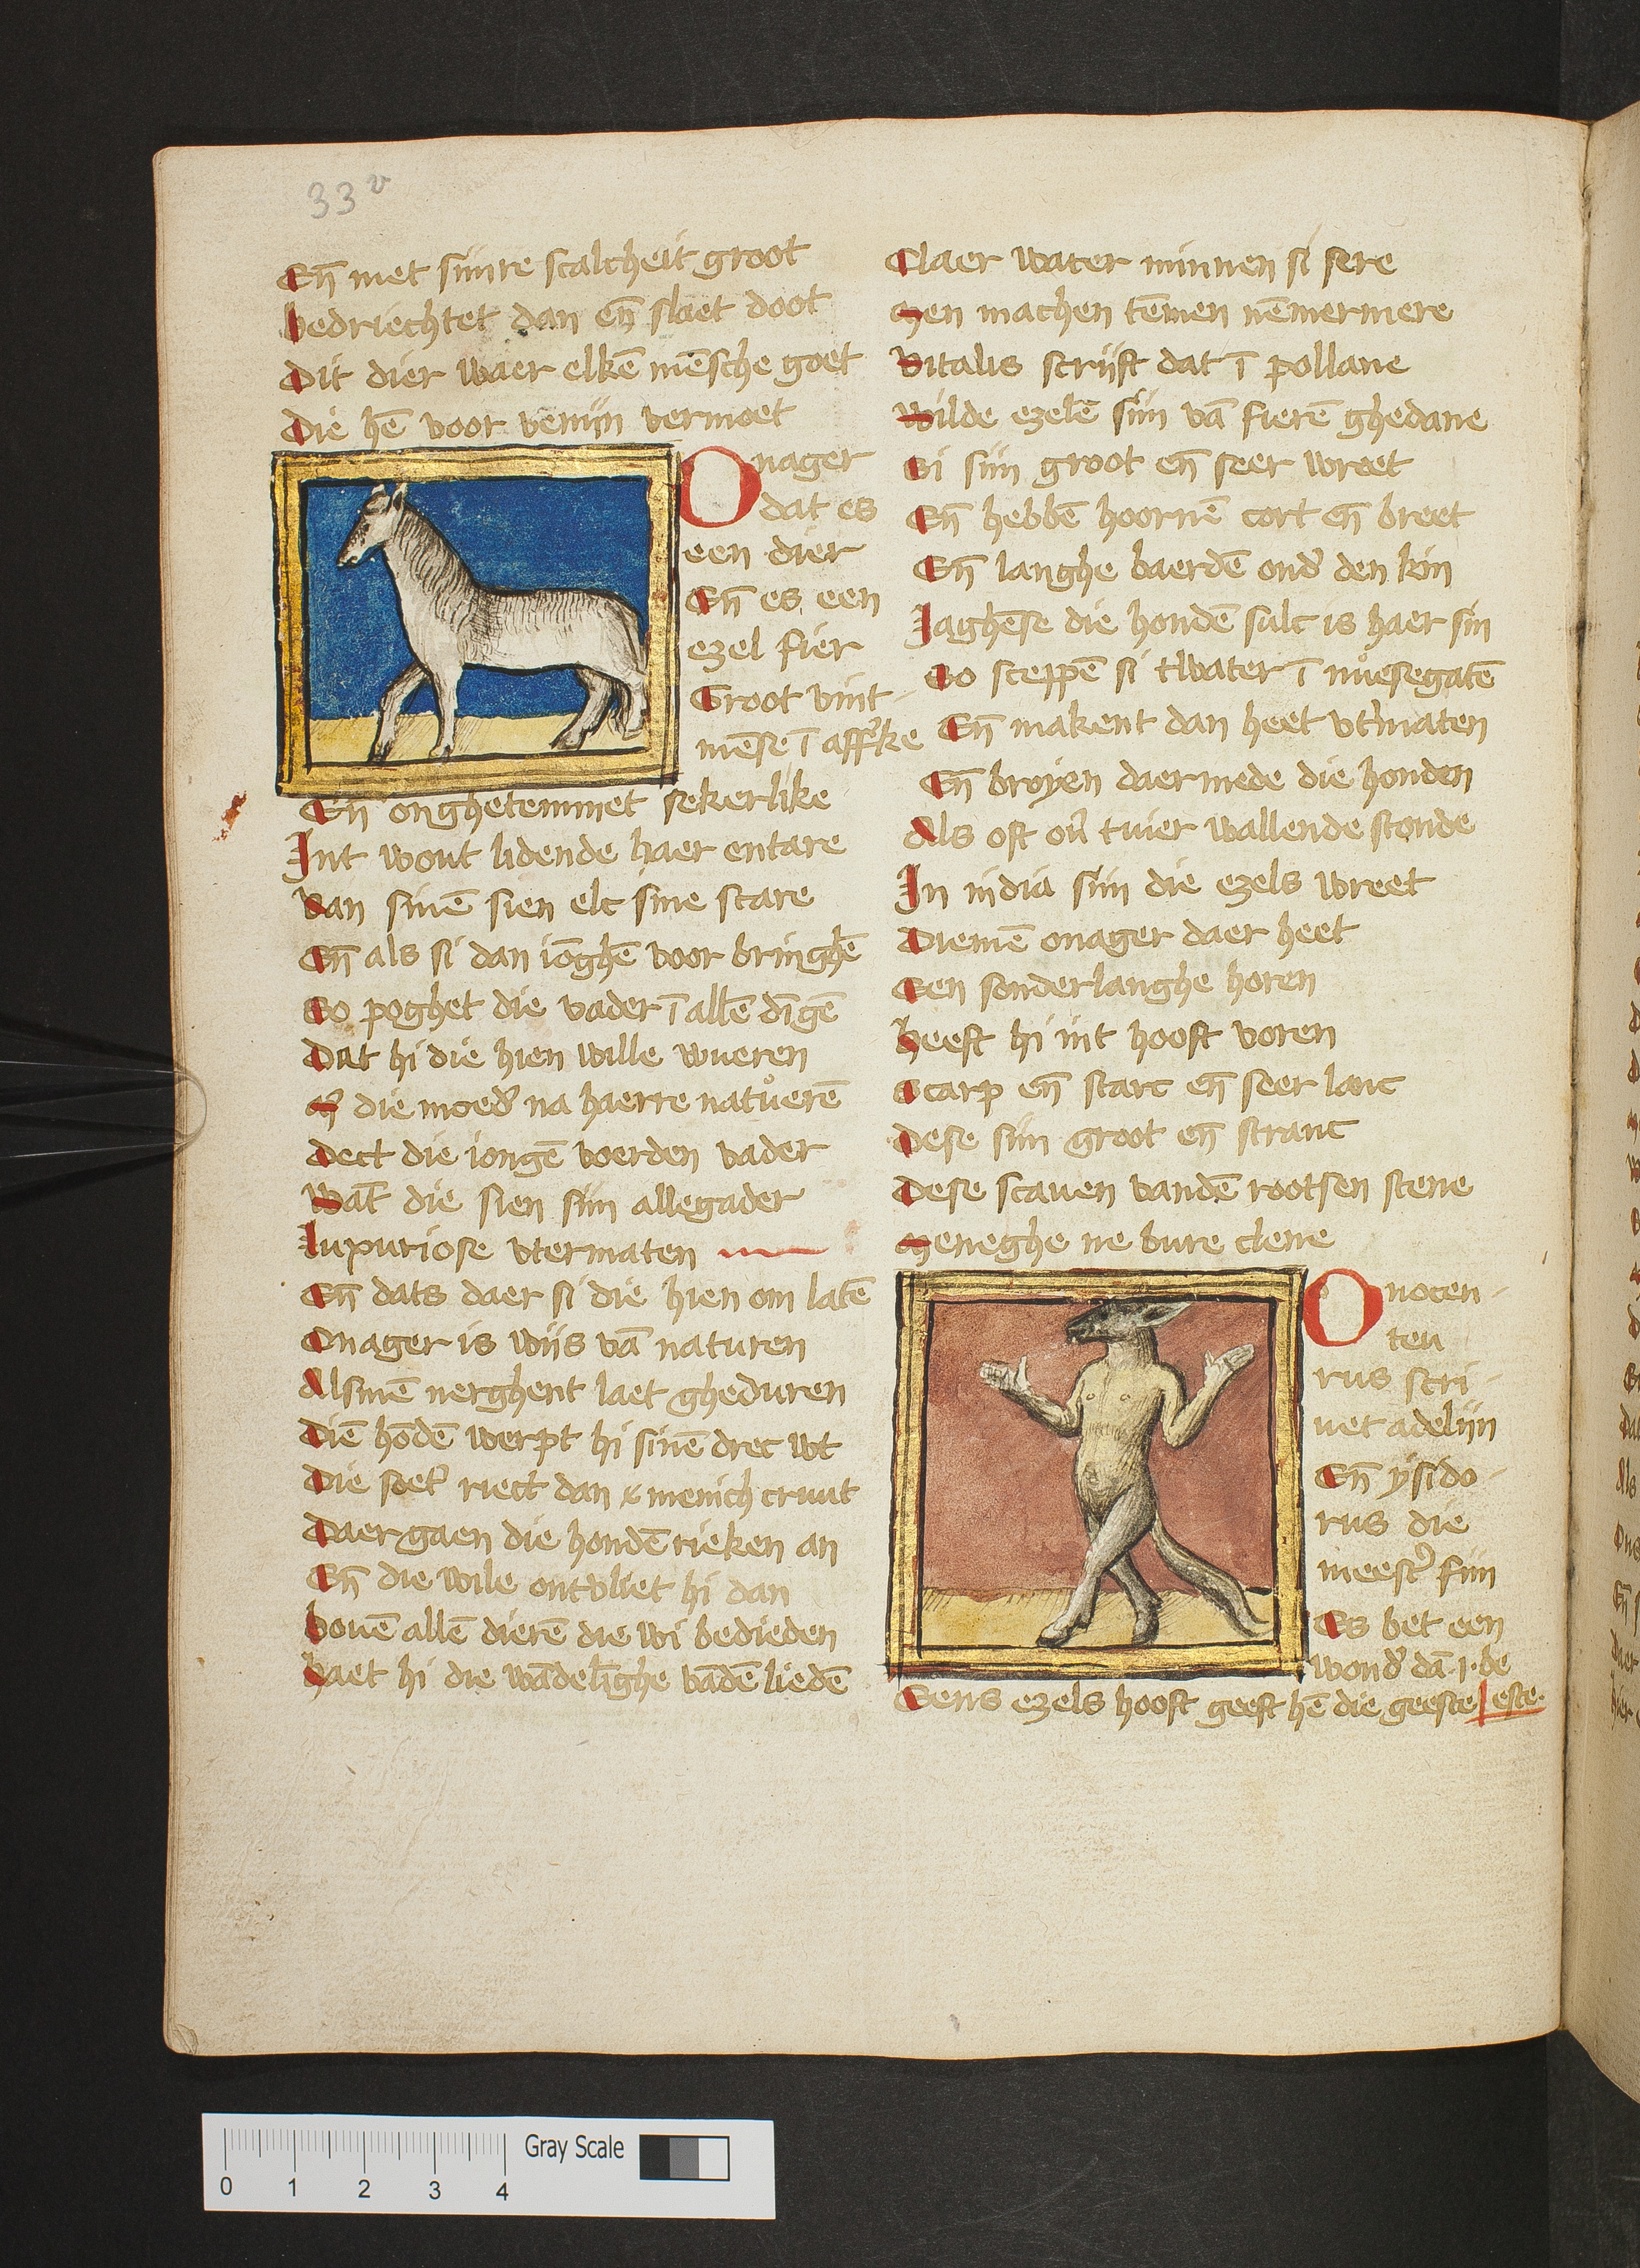 33v
En̄ met siinre scalcheit groot
bedriechtet dan en̄ slaet doot
Dit dier waer elkē mēsche goet
Die hē voor veniin vermoet
Onager
dat es
een dier
En̄ es een
ezel fier
Groot vint-
mēse ī affrike
En̄ onghetemmet sekerlike
Int wout lidende haer entare
Van sinē sien elc sine scare
En̄ als si dan iōghē voor bringhē
So poghet die vader ī allē dīgē
Dat hi die hien wille wueren
M̉ die moed̉ na haerre natůerē
Dect die iongē voerden vader
Wāt die sien siin allegader
luxuriose vtermaten
En̄ dats daer si die hien om latē
Onager is wiis vā naturen
Alsmē nerghent laet gheduren
Diē hōdē werpt hi sinē drec wt
Die soet̉ riect dan x menich cruut
Daer gaen die hondē rieken an
En̄ die wile ontvliet hi dan
bouē allē dierē die wi bedieden
haet hi die wādelīghe vādē liedē
Claer water minnen si sere
Men machen tēmen nēmermere
Vitalis scriift dat ī pollane
Wilde ezelē siin vā fierē ghedane
Si siin groot en̄ seer wreet
En̄ hebbē hoornē cort en̄ breet
En̄ langhe baerdē ond̉ den kin
Jaghēse die hondē sulc is haer sin
So sceppē si twater ī nůesegatē
En̄ makent dan heet vt̉maten
En̄ broyen daermede die honden
Als oft oủ tvier wallende stonde
In india siin die ezels wreet
Diemē onager daer heet
Een sonderlanghe horen
heeft hi int hooft voren
Scarp en̄ starc en̄ seer lanc
Dese siin groot en̄ stranc
Dese scauen vandē rootsen stene
Meneghe ne bure clene
Onocen-
teu
rus scri-
uet adeliin
En̄ ysido-
rus die
meest̉ fiin
Es bet een
wond̉ dā .i. be
este.
Eens ezels hooft geeft hē die geeste
Gray Scale
0 1 2 3 4